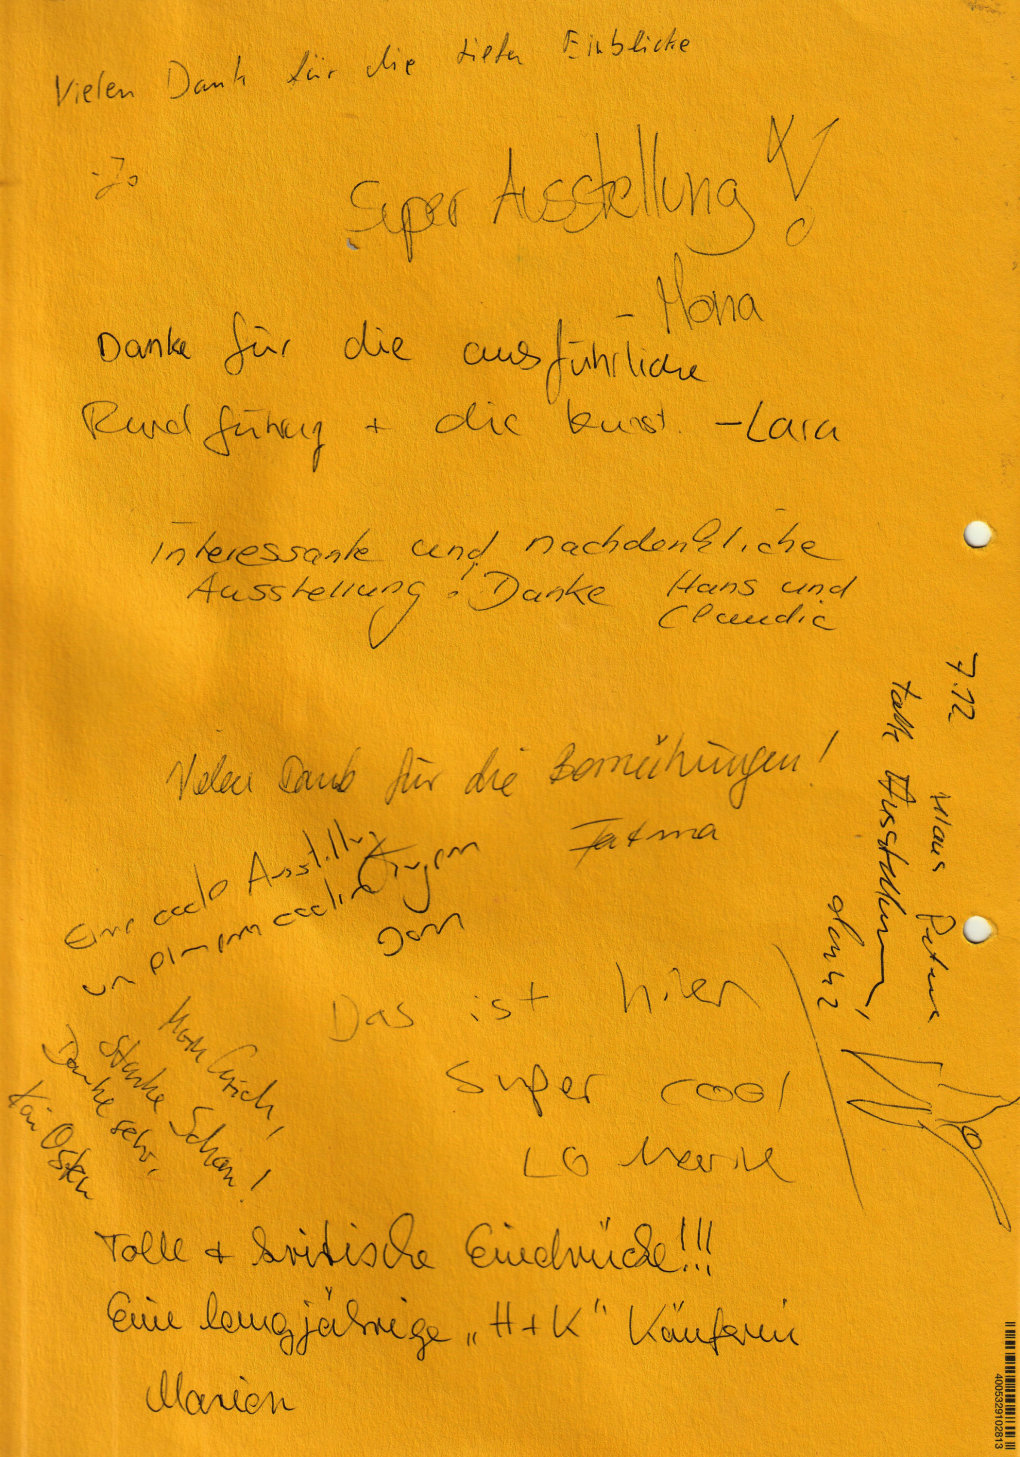 Vielen Dank für die tiefen Einblicke
- Jo
Super Ausstellung!
- Mona
Danke für die ausführliche
Rundführung + die Kunst. - Lara
interessante und nachdenkliche
Ausstellung! Danke Hans und
Claudia
7.12
Klaus Peter
tolle Ausstellung!
Vielen Dank für die Bemühungen!
Fatma
Eine coole Ausstellung
in einem coolen
Das ist hier
super cool
LG Marie
Starke Schau!
Danke sehr,
Kai Osten
Tolle + kritische Eindrücke!!!
Eine langjährige „H+K" Käuferin
Marion
4005329102813